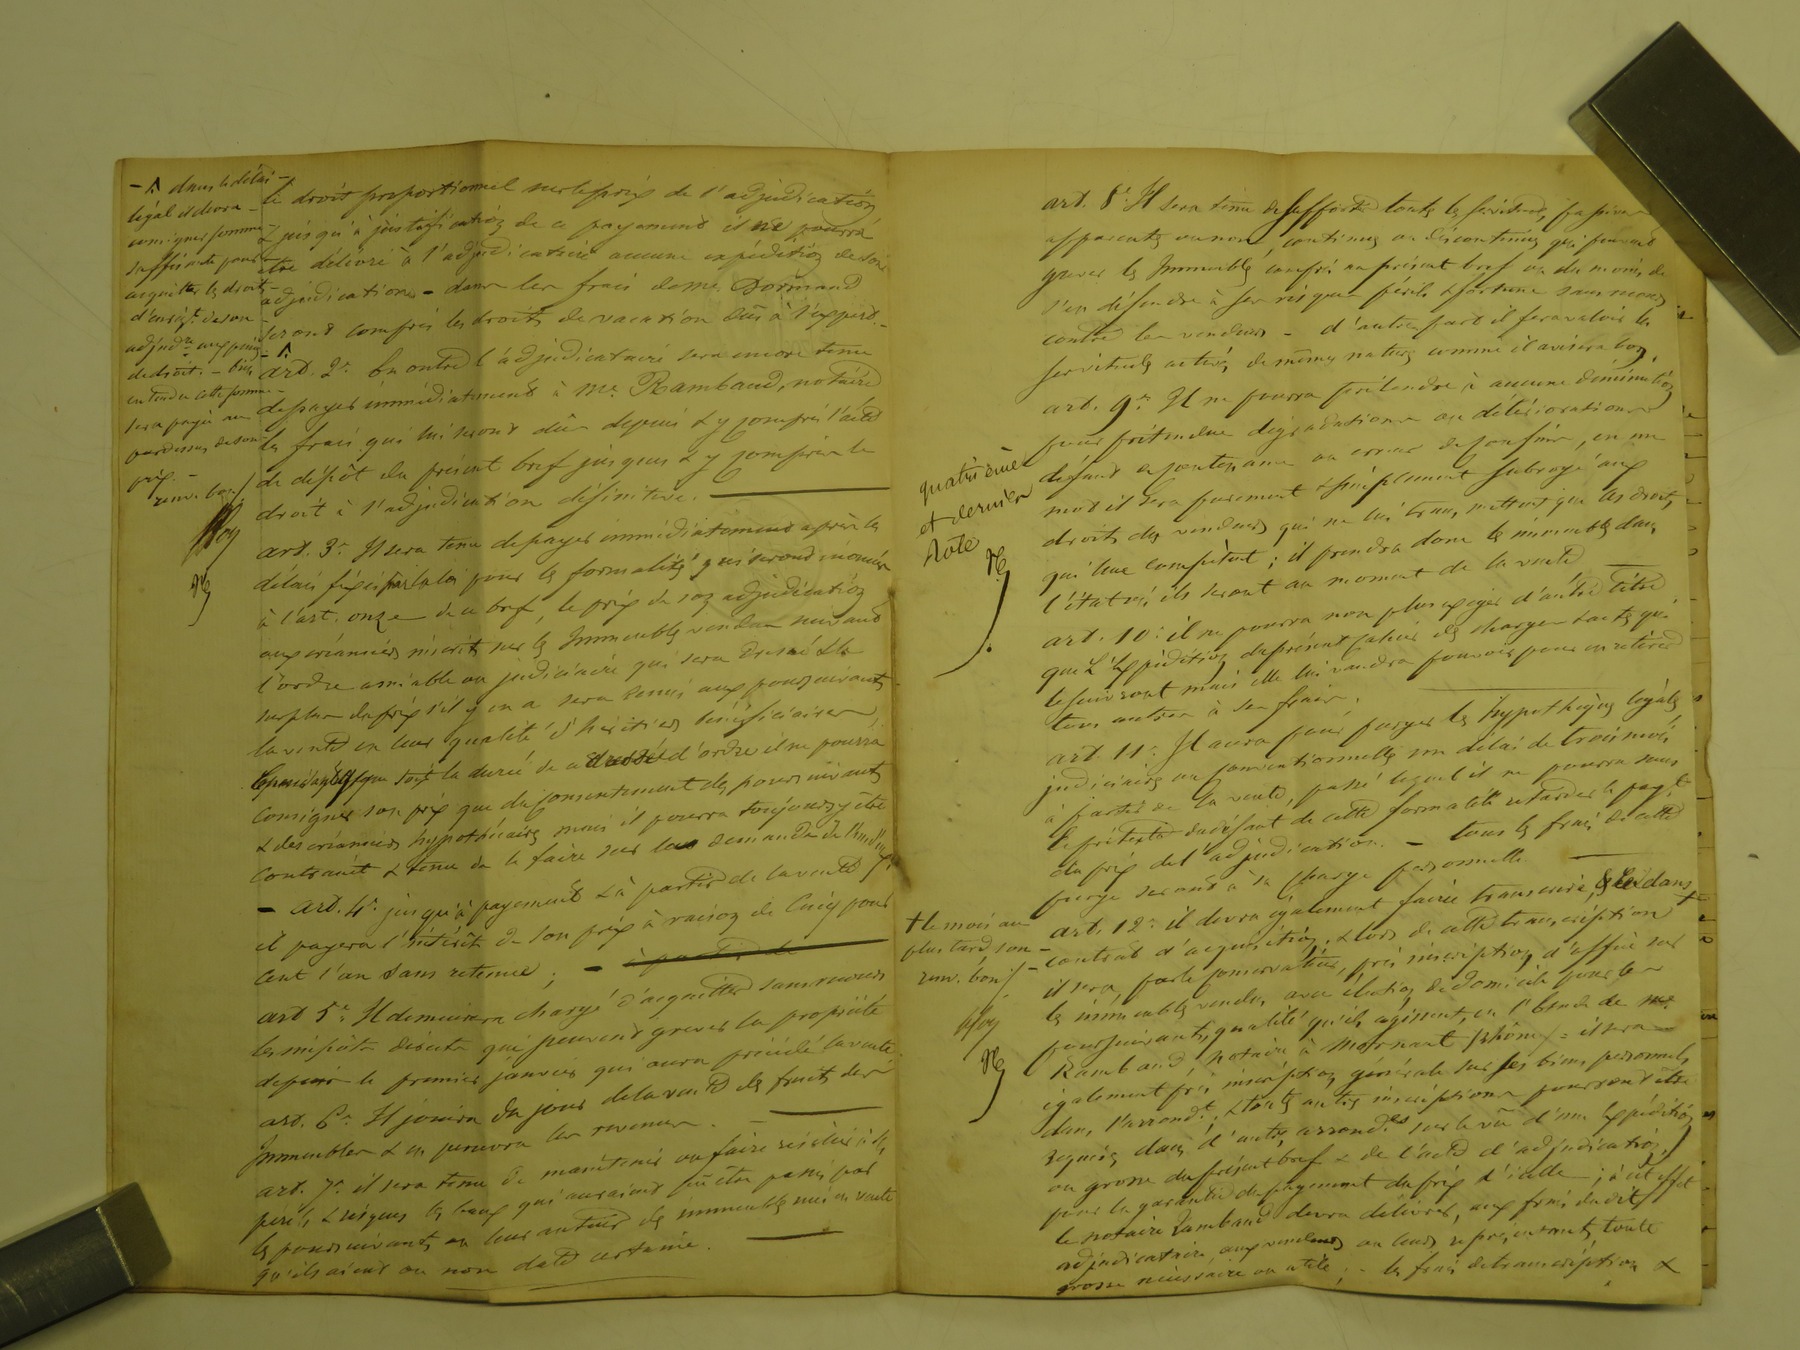 - Λ dans le délai -
légal il devra -
consigner somme
suffisante pour
acquitter les droits
d'enregt. de son
adjudon aux peines
de droit. - bien
entendu cette somme
sera payée au
pardessus de son
prix. -
renv. bon /.
le droit proportionnel sur le prix de l'adjudication
& jusqu'à justification de ce payement il ne pourra
être délivré à l'adjudicataire aucune expédition de son
adjudication - dans les frais de me Dormand
seront compris les droits de vacation dûs à l'expert. -
- Λ
art. 2e. En outre l'adjudicataire sera encore tenu
de payer immédiatement à Me. Rambaud, notaire
les frais qui lui seront dûs depuis & y compris l'acte
de dépôt du présent bref jusques & y compris le
droit à l'adjudication définitive.
art. 3e. Il sera tenu de payer immédiatement après les
délais fixés par la loi pour les formalités qui seront énoncées
à l'art. onze de ce bref, le prix de son adjudication
aux créanciers inscrits sur les Immeubles vendus suivant
l'ordre amiable ou judiciaire qui sera dressé & le
surplus du prix s'il y en a sera remis aux poursuivants
la vente en leur qualité d'héritiers bénéficiaires
quelque soit la durée de ce d'ordre il ne pourra
consigner son prix que du consentement des poursuivants
& des créanciers hypothécaires mais il pourra toujours y être
contraint & tenu de le faire sur la demande de l'un d'eux
- art. 4e. jusqu'à payement & à partir de la vente
il payera l'intérêt de son prix à raison de Cinq pour
cent l'an sans retenue ; - à partir de
art 5e. Il demeurera chargé d'acquitter sans recours
les impôts directs qui peuvent grever la propriété
depuis le premier janvier qui aura précédé la vente.
art. 6e. Il jouira du jour de la vente des fruits des
Immeubles & en percevra les revenus.
art. 7e. il sera tenu de maintenir ou faire résilier à ses
périls & risques les baux qui auraient pu être passés par
les poursuivants ou leur auteur des immeubles mis en vente
qu'ils aient ou non date certaine.
quatrième
et dernier
rôle
art. 8e. Il sera tenu de souffrir toutes les servitudes, passives
apparentes ou non, continues ou discontinues qui peuvent
grever les Immeubles compris au présent bref ou du moins de
s'en défendre à ses risques périls & fortune sans recours
contre les vendeurs - d'autre part il fera valoir les
servitudes actives de même nature comme il avisera bon.
art. 9e. Il ne pourra prétendre à aucune diminution
pour prétendue dégradations ou détériorations
défaut de contenance ou erreur de confins, en un
mot il sera purement & simplement subrogé aux
droits des vendeurs qui ne lui transmettent que les droits
qui leur compètent ; il prendra donc les immeubles dans
l'état où ils seront au moment de la vente
art. 10e. il ne pourra non plus exiger d'autre titre
que l'expédition du présent cahier des charges & actes qui
le suivront mais elle lui vaudra pouvoir pour en retirer
tous autres à ses frais.
art. 11e. Il aura pour purger les hypothèques légales
judiciaires ou conventionnelles un délai de trois mois
à partir de la vente, passé lequel il ne pourra sous
le prétexte du défaut de cette formalité retarder le payt
du prix de l'adjudication. - tous les frais de cette
purge seront à sa charge personnelle.
art. 12e. il devra également faire transcrire, dans
+ le mois au
plus tard, son -
renv. bon /. -
contrat d'acquisition. & lors de cette transcription
il sera, par le conservateur, pris inscription d'office sur
les immeubles vendus avec élection de domicile pour les
poursuivants, qualité qu'ils agissent, en l'Etude de me
Rambaud, notaire à Mornant (Rhône) - il sera
également pris inscription générale sur ses biens personnels
dans l'arrondt. & toutes autres inscriptions pourront être
requises dans d'autres arrondts. sur le vû d'une Expédition
ou grosse du présent bref & de l'acte d'adjudication,
pour la garantie du payement du prix d'icelle ; à cet effet
le notaire Rambaud devra délivrer, aux frais dudit
adjudicataire, aux vendeurs ou leurs représentants toute
grosse nécessaire ou utile ; - les frais de transcription &